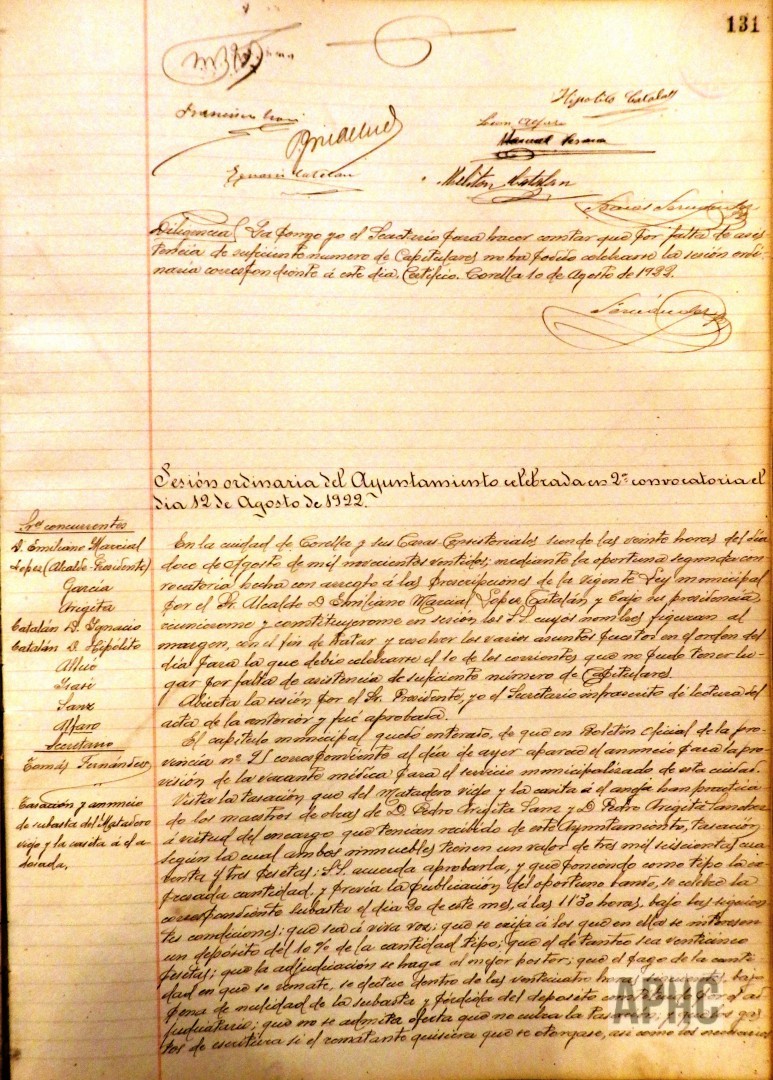 131
Hipolito Catalán
Francisco
León Alfaro
Manuel
Ignacio Catalán
Melitón Catalán
Tomás Fernández
Diligencia) La pongo yo el Secretario para hacer constar que por falta de asis
tencia de suficiente numero de Capitulares no ha podido celebrarse la sesión ordi-
naria correspondiente á este dia. Certifico. Corella 10 de Agosto de 1922.
Fernández
Sesión ordinaria del Ayuntamiento celebrada en 2ª convocatoria el
dia 12 de Agosto de 1922.
Sres concurrentes
D. Emiliano Marcial
Lopez (Alcalde-Presidente)
García
Arigita
Catalán D. Ignacio
Catalán D. Hipólito
Sanz
Alfaro
Secretario
Tomás Fernández
Tasación y anuncio
de subasta del Matadero
viejo y la caseta á él a-
dosada.
En la ciudad de Corella y sus Casas Consistoriales siendo las veinte horas del dia
doce de Agosto de mil novecientos veintidós, mediante la oportuna segunda con-
vocatoria hecha con arreglo á las prescripciones de la vigente Ley municipal
por el Sr. Alcalde D. Emiliano Marcial Lopez Catalán y bajo su presidencia,
reunieronse y constituyeronse en sesión los SS. cuyos nombres figuran al
margen, con el fin de tratar y resolver los varios asuntos puestos en el orden del
dia para la que debió celebrarse el 10 de los corrientes que no pudo tener lu-
gar por falta de asistencia de suficiente número de Capitulares.
Abierta la sesión por el Sr. Presidente, yo el Secretario infrascrito dí lectura del
acta de la anterior y fué aprobada.
El capitulo municipal quedó enterado, de que en Boletín Oficial de la pro-
vincia nº correspondiente al dia de ayer aparece el anuncio para la pro-
visión de la vacante médica para el servicio municipalizado de esta ciudad.
Vista la tasación que del Matadero viejo y la caseta á él aneja han practica-
do los maestros de obras D. Pedro Arigita Sanz y D. Pedro Arigita Sanchez
á virtud del encargo que tenian recibido de este Ayuntamiento, tasación
según la cual ambos inmuebles tienen un valor de tres mil seiscientas cua-
renta y tres pesetas; S.S. acuerda aprobarla, y que poniendo como tipo la ex-
presada cantidad, y previa la publicación del oportuno bando, se celebre la
correspondiente subasta el dia 20 de este mes, á las 11'30 horas, bajo las siguien-
tes condiciones: que sea á viva voz; que se exija á los que en ella se interesen
un depósito del 10% de la cantidad tipo; que el de tanteo sea veinticinco
pesetas; que la adjudicación se haga al mejor postor; que el pago de la canti-
dad en que se remate, se efectue dentro de las veinticuatro horas siguientes, bajo
pena de nulidad de la subasta y pérdida del deposito constituido por el ad-
judicatario; que no se admita oferta que no cubra la tasación; que los gas-
tos de escritura si el rematante quisiera que se otorgase, así como los necesarios